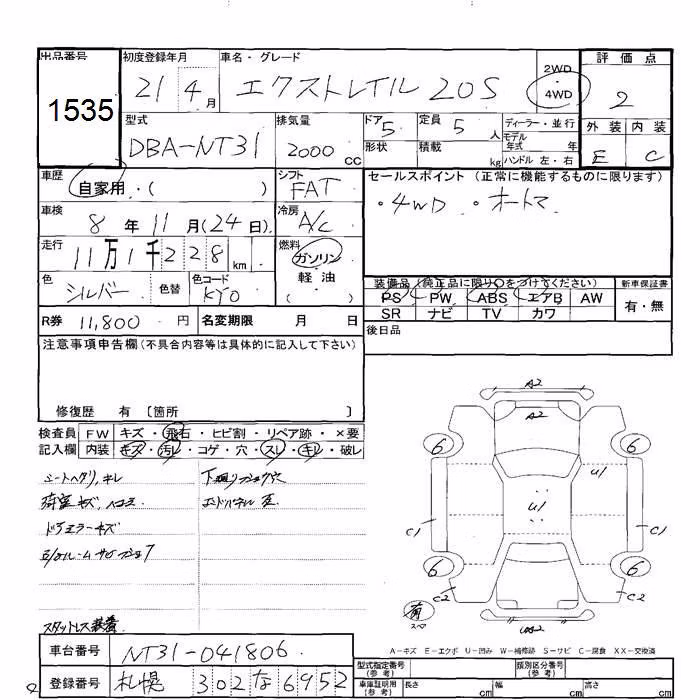 出品番号
1535
初度登録年月
21 4 月
車名・グレード
エクストレイル 20S
2WD
・
4WD
評価点
2
外装 内装
E C
型式
DBA-NT31
排気量
2000 CC
ドア 5
形状
定員 5 人
積載 kg
ディーラー・並行
モデル年式 年
ハンドル 左・右
車歴
自家用・( )
シフト
FAT
セールスポイント (正常に機能するものに限ります)
・4WD ・オートマ
車検
8 年 11 月(24 日)
冷房
A/C
走行
11万1千228 km
燃料
ガソリン
軽・油
( )
色
シルバー
色替
色コード
KY0
装備品 (純正品に限り○をつけてください)
新車保証書
PS PW ABS エアB AW
有・無
SR ナビ TV カワ
R券 11,800 円 名変期限 月 日
後日品
注意事項申告欄(不具合内容等は具体的に記入して下さい)
修復歴 有 〔箇所 〕
検査員 FW キズ・飛石・ヒビ割・リペア跡・×要
記入欄 内装 キズ・汚レ・コゲ・穴・スレ・キレ・破レ
シートヘタリ、キレ
荷室キズ、ハコミ
ドアミラーキズ
スタットレス装着
A2
A2
6 6
U1
U1
C1 C1
6 6
C2 C2
有
スペア
A-キズ E-エクボ U-凹み W-補修跡 S-サビ C-腐食 XX-交換済
車台番号 NT31-041806
登録番号 札幌 302 な 6952
型式指定番号 (参考)
類別区分番号 (参考)
車庫証明用 (参考) 長さ cm 幅 cm 高さ cm